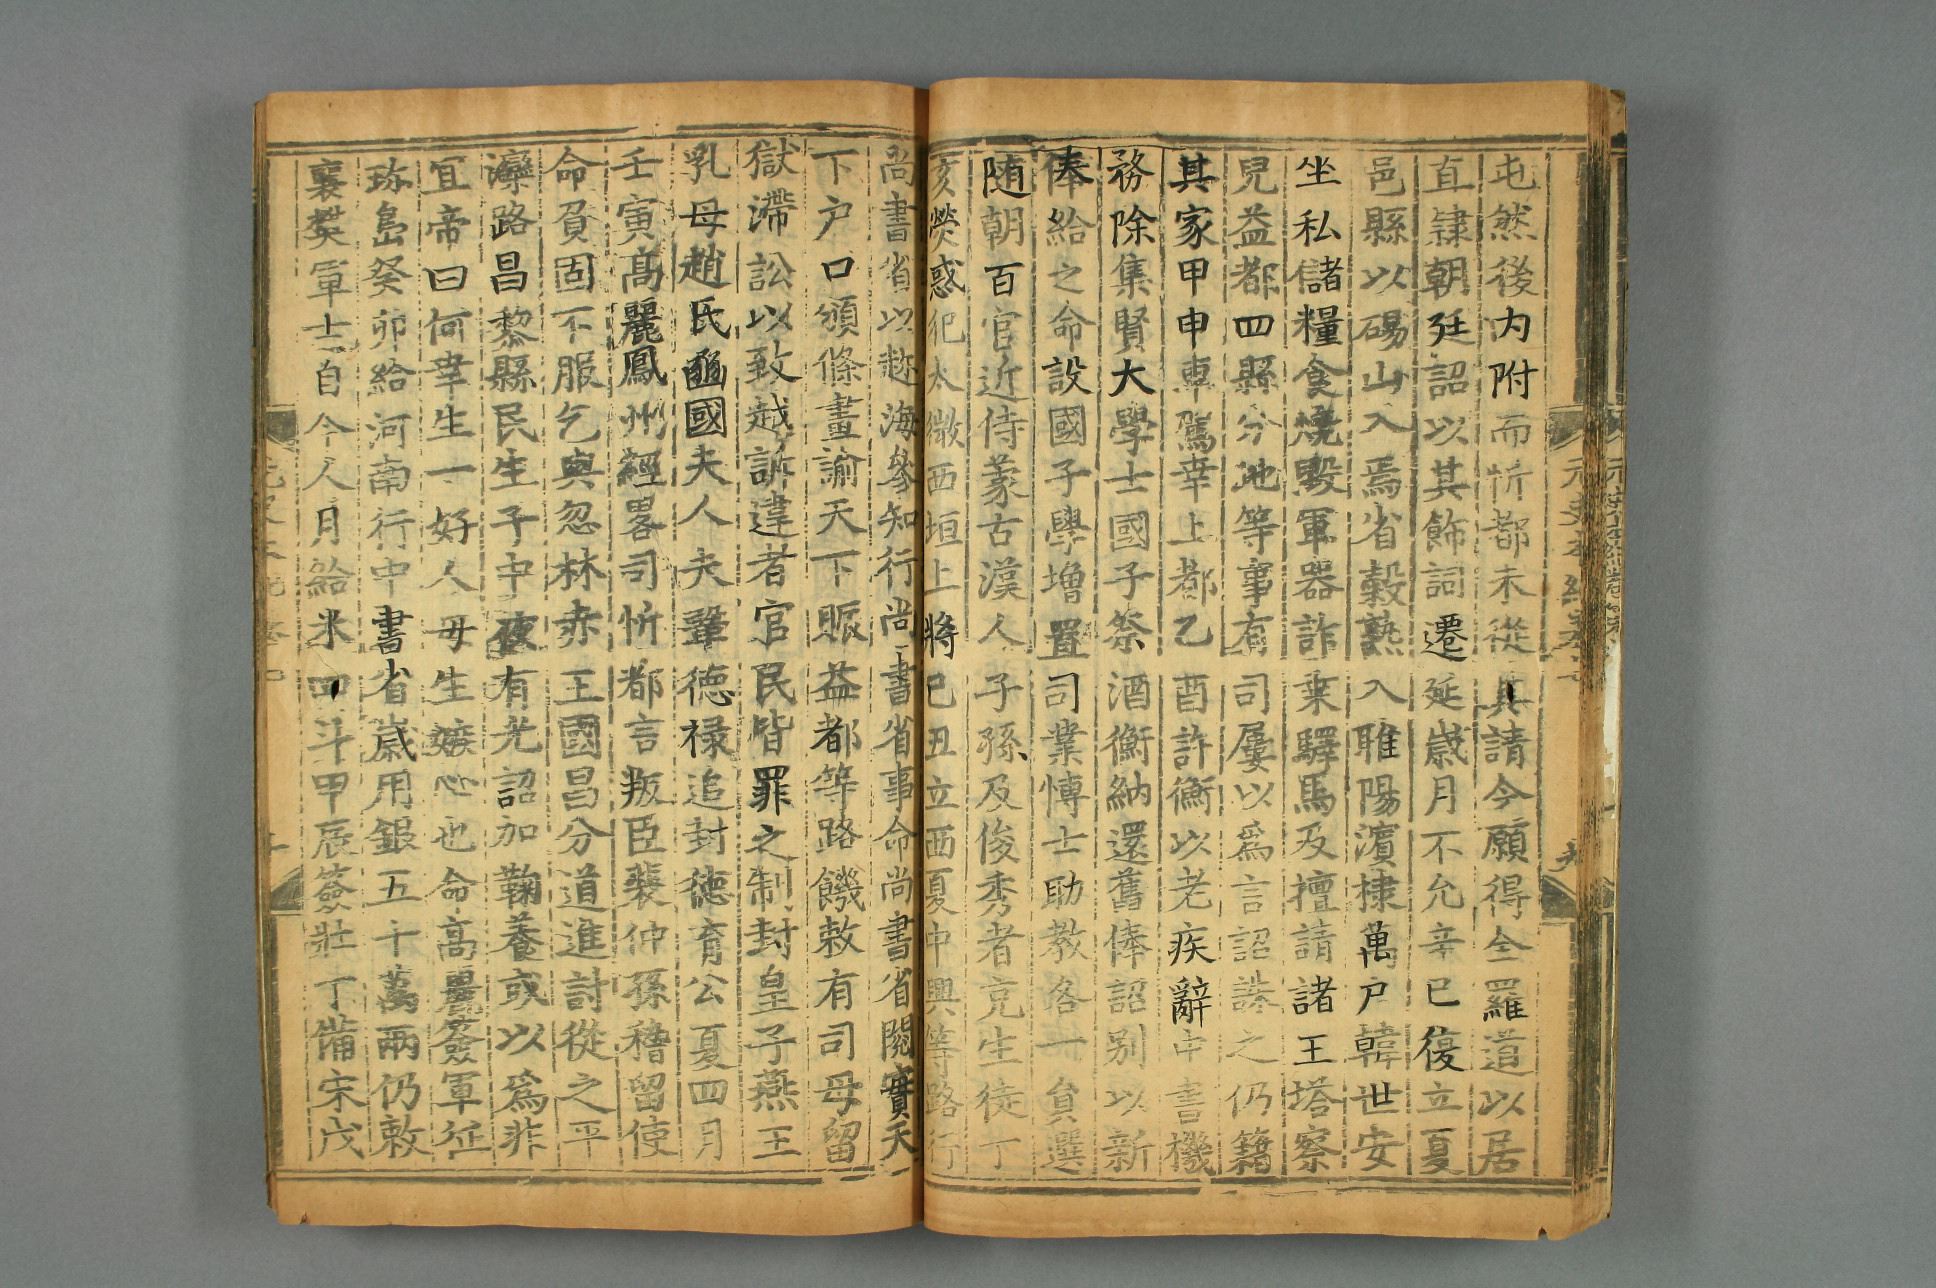 屯然後内附而忻都未從其請今願得全羅道以居
直隷朝廷詔以其飾詞遷延歲月不允辛巳復立夏
邑縣以碭山入焉省穀熟入睢陽濵棣萬戸韓世安
坐私儲糧食燒毀軍器詐乗驛馬及擅請諸王塔察
兒益都四縣分地等事有司屢以爲言詔誅之仍籍
其家甲申車駕幸上都乙酉許衡以老疾辭中書機
務除集賢大學士國子祭酒衡納還舊俸詔别以新
俸給之命設國子學増置司業博士助教各一貟選
随朝百官近侍蒙古漢人子孫及俊秀者充生徒丁
亥熒惑犯太微西垣上將己丑立西夏中興等路行
尚書省以趂海參知行尚書省事命尚書省閱實天
下户口頒條畫諭天下賑益都等路饑敕有司毋留
獄滯訟以致越訴違者官民皆罪之制封皇子燕王
乳母趙氏豳國夫人夫鞏德禄追封德育公夏四月
壬寅髙麗鳳州經畧司忻都言叛臣裴仲孫稽留使
命負固不服乞與忽林赤王國昌分道進討從之平
灤路昌黎縣民生子中夜有光詔加鞠養或以爲非
宜帝曰何幸生一好人毋生嫉心也命高麗簽軍征
珎島癸卯給河南行中書省歲用銀五十萬兩仍敕
襄樊軍士自今人月給米四斗甲辰簽壯丁備宋戊